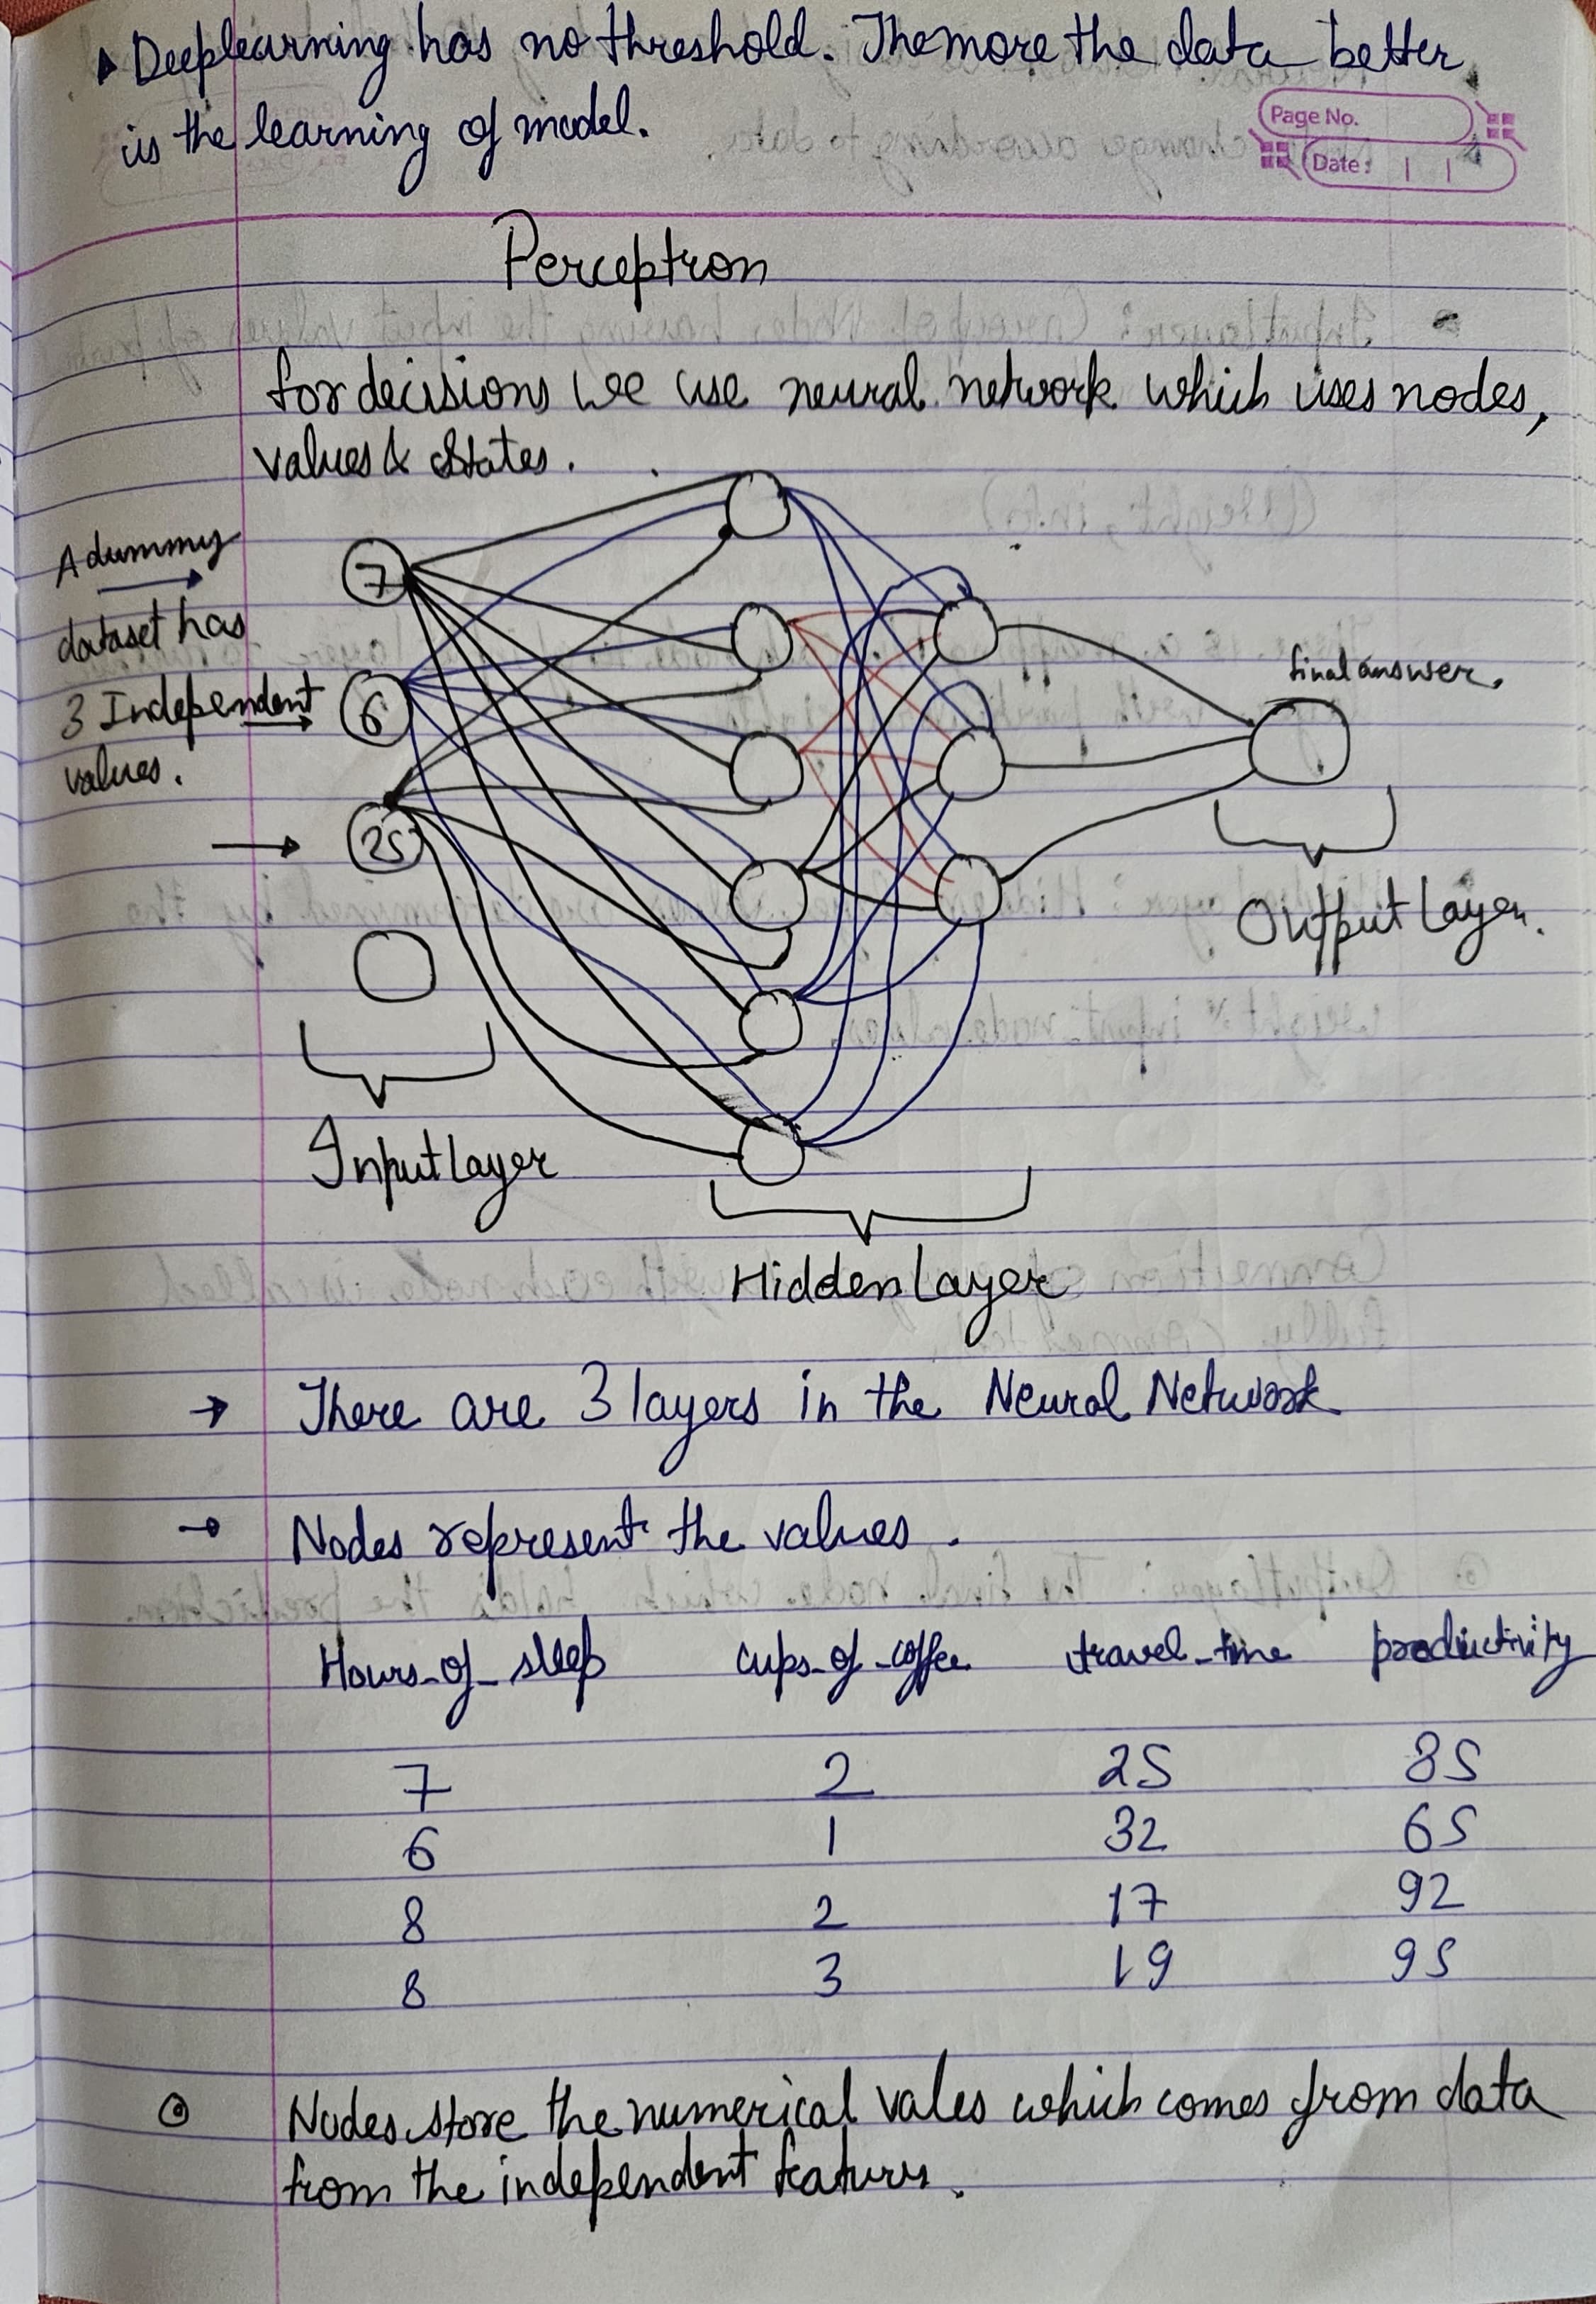 Deeplearning has no threshold. The more the data better
is the learning of model.
Page No.
Date:
Perceptron
for decisions we use neural network which uses nodes,
values & States.
A dummy
dataset has
3 Independent
values.
7
6
25
final answer.
Output Layer.
Input Layer
Hidden Layer
→ There are 3 layers in the Neural Network
→ Nodes represent the values.
Hours_of_sleep cups_of_coffee travel_time productivity
7 2 25 85
6 1 32 65
8 2 17 92
8 3 19 95
Nodes store the numerical vales which comes from data
from the independent features.